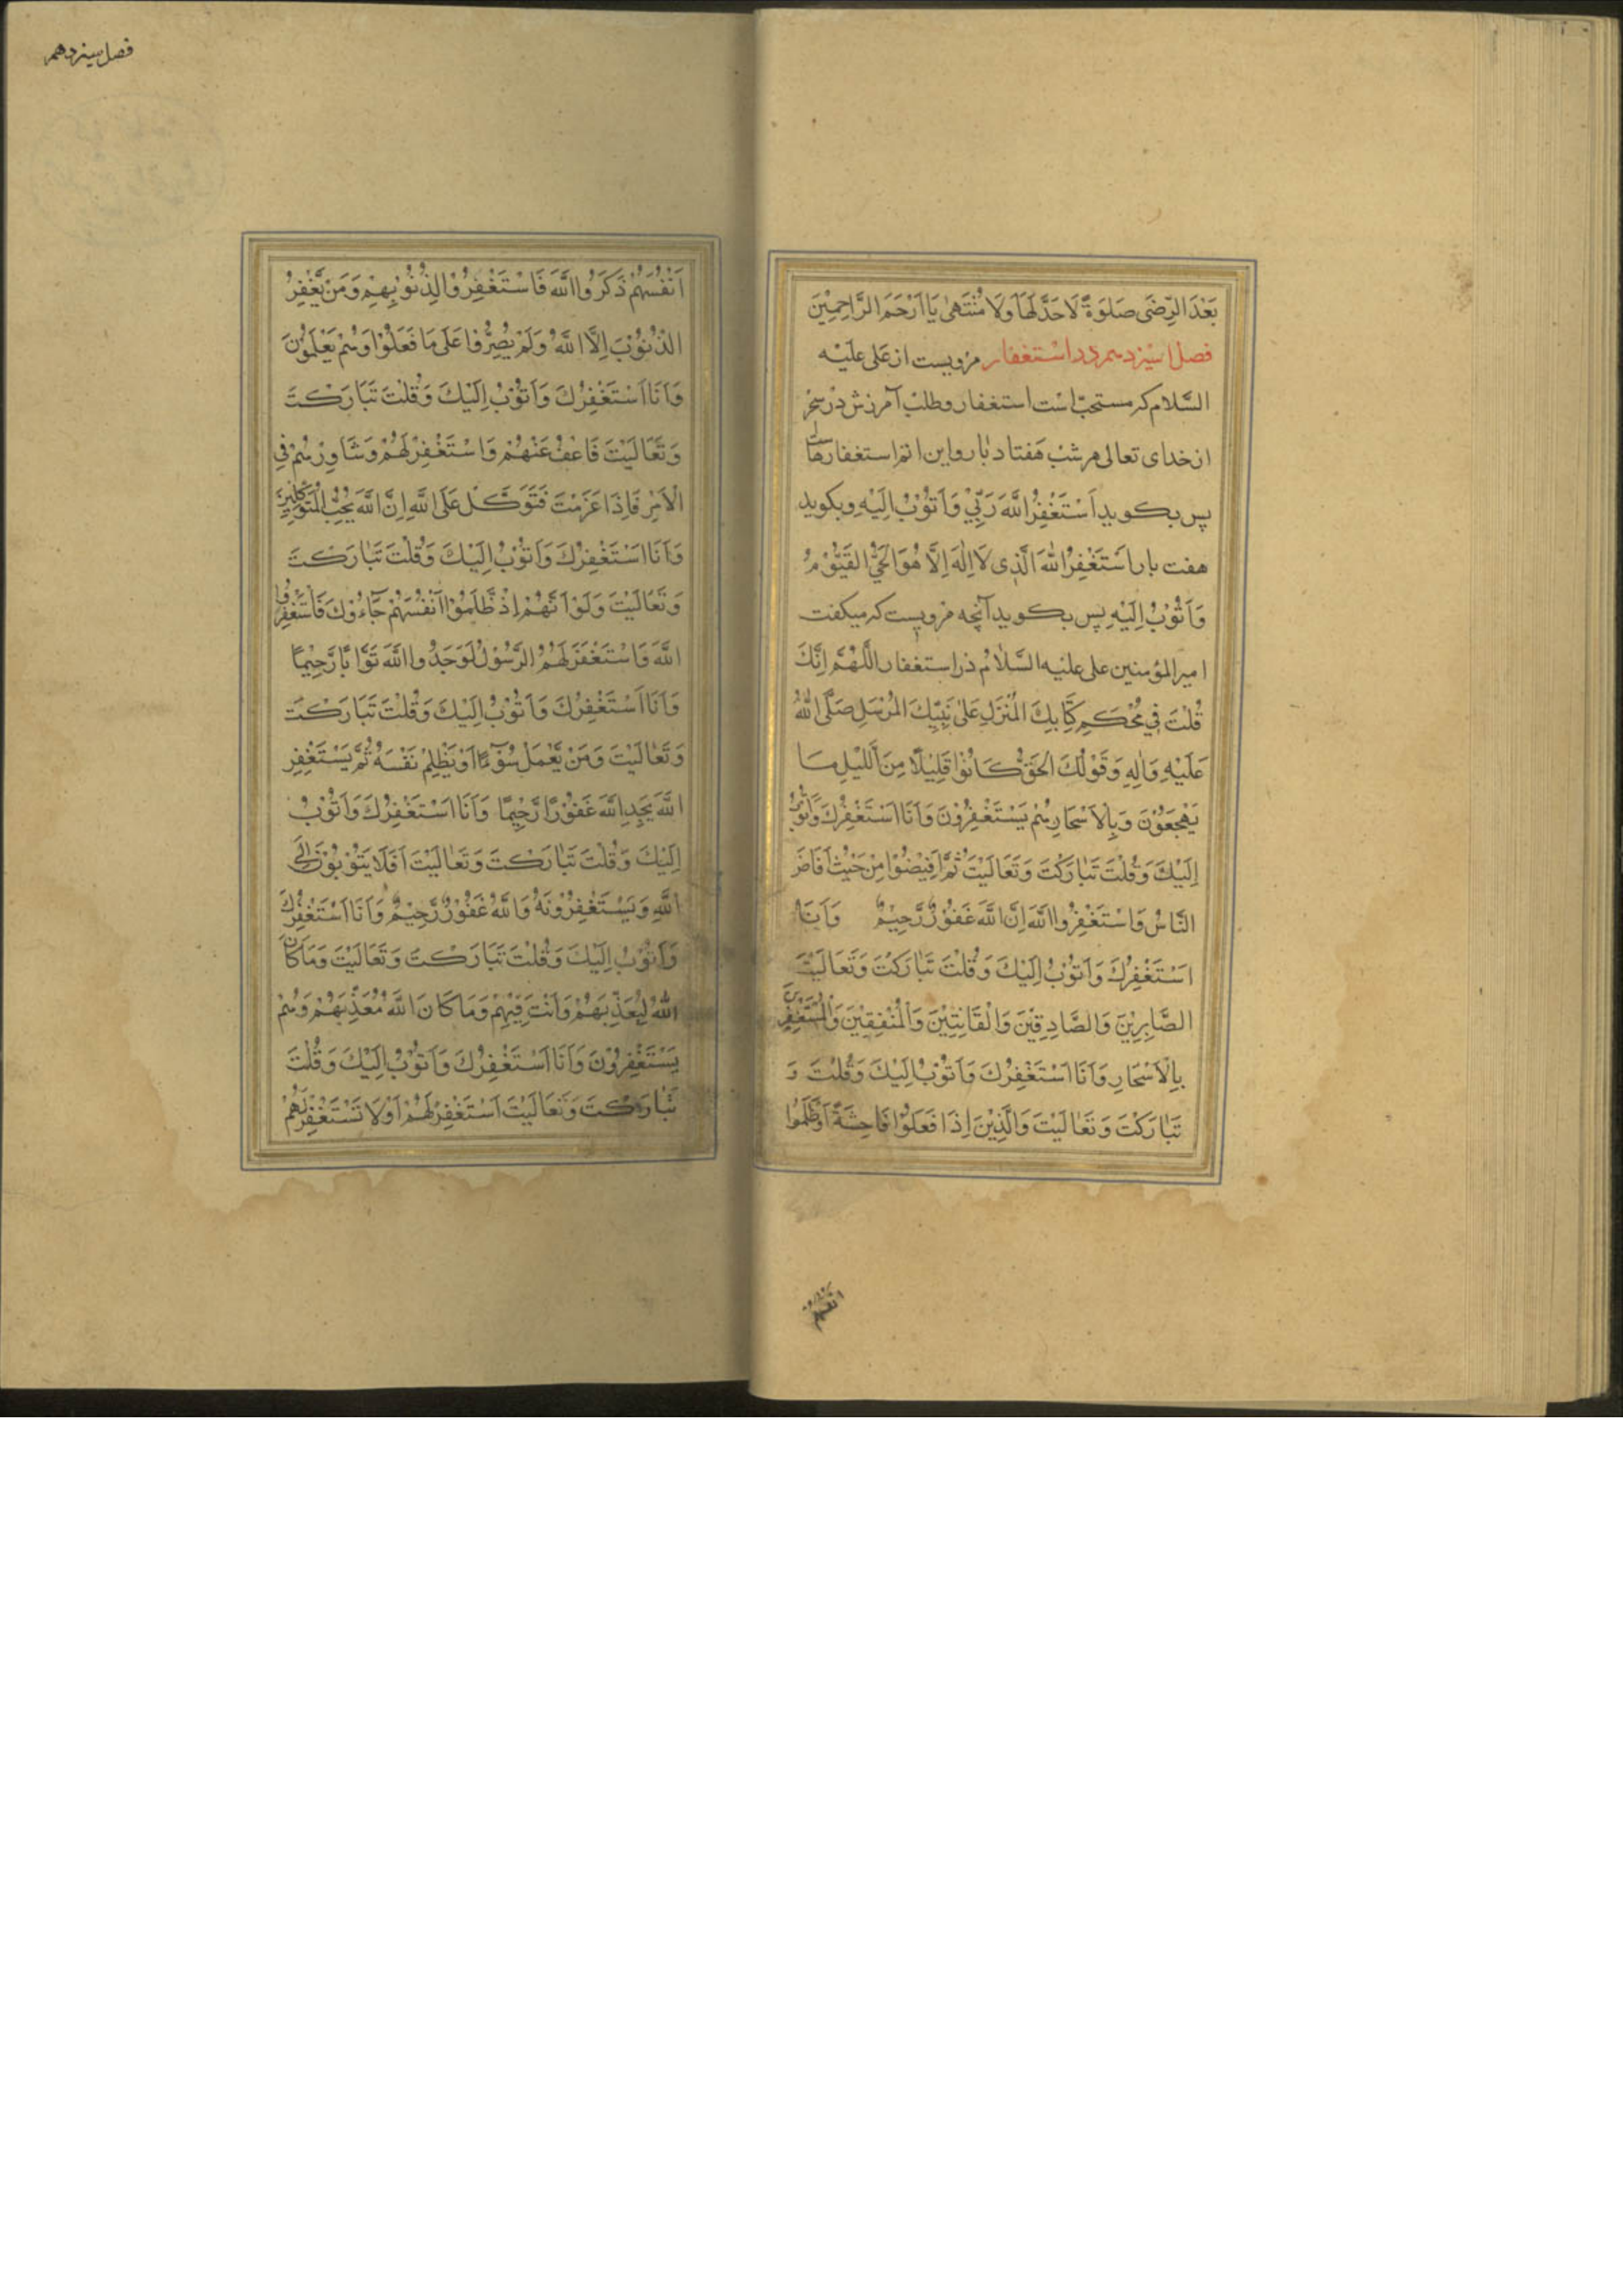 بَعْدَ الرِّضَى صَلَوةً لَا حَدَّ لَهَا وَلَا مُنْتَهَىٰ يَا اَرْحَمَ الرَّاحِمِيْنَ
فصل سیزدهم در استغفار مرویست از علی علیه
السَّلام که مستحبّ است استغفار و طلب آمرزش در سحر
از خدای تعالی هر شب هفتاد بار و این اتم استغفارهاست
پس بکوید اَسْتَغْفِرُ اللَّهَ رَبِّيْ وَاَتُوْبُ اِلَيْهِ و بکوید
هفت بار اَسْتَغْفِرُ اللهَ الَّذِی لَا اِلٰهَ اِلَّا هُوَ الْحَيُّ الْقَيُّوْمُ
وَاَتُوْبُ اِلَيْهِ پس بکوید آنچه مرویست که میکفت
امیر المؤمنین علی علیه السَّلَامُ در استغفار اللّٰهُمَّ اِنَّكَ
قُلْتَ فِي مُحْكَمِ كِتَابِكَ الْمُنْزَلِ عَلىٰ نَبِيِّكَ الْمُرْسَلِ صَلَّى اللهُ
عَلَيْهِ وَاٰلِهِ وَقَوْلُكَ الْحَقُّ كَانُوْا قَلِيْلًا مِنَ اللَّيْلِ مَا
يَهْجَعُوْنَ وَبِالْاَسْحَارِ هُمْ يَسْتَغْفِرُوْنَ وَاَنَا اَسْتَغْفِرُكَ وَاَتُوْبُ
اِلَيْكَ وَقُلْتَ تَبَارَكْتَ وَتَعَالَيْتَ ثُمَّ اَفِيْضُوْا مِنْ حَيْثُ اَفَاضَ
النَّاسُ وَاسْتَغْفِرُوا اللَّهَ اِنَّ اللَّهَ غَفُوْرٌ رَّحِيْمٌ وَاَنَا
اَسْتَغْفِرُكَ وَاَتُوْبُ اِلَيْكَ وَقُلْتَ تَبَارَكْتَ وَتَعَالَيْتَ
الصَّابِرِيْنَ وَالصَّادِقِيْنَ وَالْقَانِتِيْنَ وَالْمُنْفِقِيْنَ وَالْمُسْتَغْفِرِيْنَ
بِالْاَسْحَارِ وَاَنَا اَسْتَغْفِرُكَ وَاَتُوْبُ اِلَيْكَ وَقُلْتَ وَ
تَبَارَكْتَ وَتَعَالَيْتَ وَالَّذِيْنَ اِذَا فَعَلُوْا فَاحِشَةً اَوْ ظَلَمُوا
فصل سیزدهم
اَنْفُسَهُمْ ذَكَرُوا اللَّهَ فَاسْتَغْفَرُوْا لِذُنُوْبِهِمْ وَمَنْ يَّغْفِرُ
الذُّنُوْبَ اِلَّا اللَّهُ وَلَمْ يُصِرُّوْا عَلَى مَا فَعَلُوْا وَهُمْ يَعْلَمُوْنَ
وَاَنَا اَسْتَغْفِرُكَ وَاَتُوْبُ اِلَيْكَ وَقُلْتَ تَبَارَكْتَ
وَتَعَالَيْتَ فَاعْفُ عَنْهُمْ وَاسْتَغْفِرْ لَهُمْ وَشَاوِرْهُمْ فِي
الْاَمْرِ فَاِذَا عَزَمْتَ فَتَوَكَّلْ عَلَى اللَّهِ اِنَّ اللَّهَ يُحِبُّ الْمُتَوَكِّلِيْنَ
وَاَنَا اَسْتَغْفِرُكَ وَاَتُوْبُ اِلَيْكَ وَقُلْتَ تَبَارَكْتَ
وَتَعَالَيْتَ وَلَوْ اَنَّهُمْ اِذْ ظَّلَمُوْا اَنْفُسَهُمْ جَاءُوْكَ فَاسْتَغْفَرُوا
اللَّهَ وَاسْتَغْفَرَ لَهُمُ الرَّسُوْلُ لَوَجَدُوا اللَّهَ تَوَّابًا رَّحِيْمًا
وَاَنَا اَسْتَغْفِرُكَ وَاَتُوْبُ اِلَيْكَ وَقُلْتَ تَبَارَكْتَ
وَتَعَالَيْتَ وَمَنْ يَّعْمَلْ سُوْءًا اَوْ يَظْلِمْ نَفْسَهُ ثُمَّ يَسْتَغْفِرِ
اللَّهَ يَجِدِ اللَّهَ غَفُوْرًا رَّحِيْمًا وَاَنَا اَسْتَغْفِرُكَ وَاَتُوْبُ
اِلَيْكَ وَقُلْتَ تَبَارَكْتَ وَتَعَالَيْتَ اَفَلَا يَتُوْبُوْنَ اِلَى
اللَّهِ وَيَسْتَغْفِرُوْنَهُ وَاللَّهُ غَفُوْرٌ رَّحِيْمٌ وَاَنَا اَسْتَغْفِرُكَ
وَاَتُوْبُ اِلَيْكَ وَقُلْتَ تَبَارَكْتَ وَتَعَالَيْتَ وَمَا كَانَ
اللهُ لِيُعَذِّبَهُمْ وَاَنْتَ فِيْهِمْ وَمَا كَانَ اللَّهُ مُعَذِّبَهُمْ وَهُمْ
يَسْتَغْفِرُوْنَ وَاَنَا اَسْتَغْفِرُكَ وَاَتُوْبُ اِلَيْكَ وَقُلْتَ
تَبَارَكْتَ وَتَعَالَيْتَ اَسْتَغْفِرْ لَهُمْ اَوْ لَا تَسْتَغْفِرْ لَهُمْ